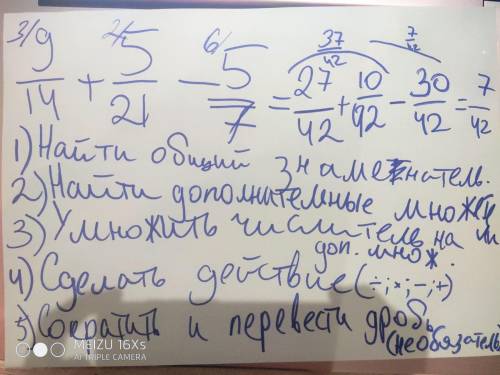 3/ 2/ 6/ 37/42 7/42
9/14 + 5/21 - 5/7 = 27/42 + 10/42 - 30/42 = 7/42
1) Найти общий знаменатель.
2) Найти дополнительные множ
3) Умножить числитель на
доп. множ.
4) Сделать действие (÷;×;-;+)
5) Сократить и перевести дробь
(необязатель
MEIZU 16Xs
AI TRIPLE CAMERA